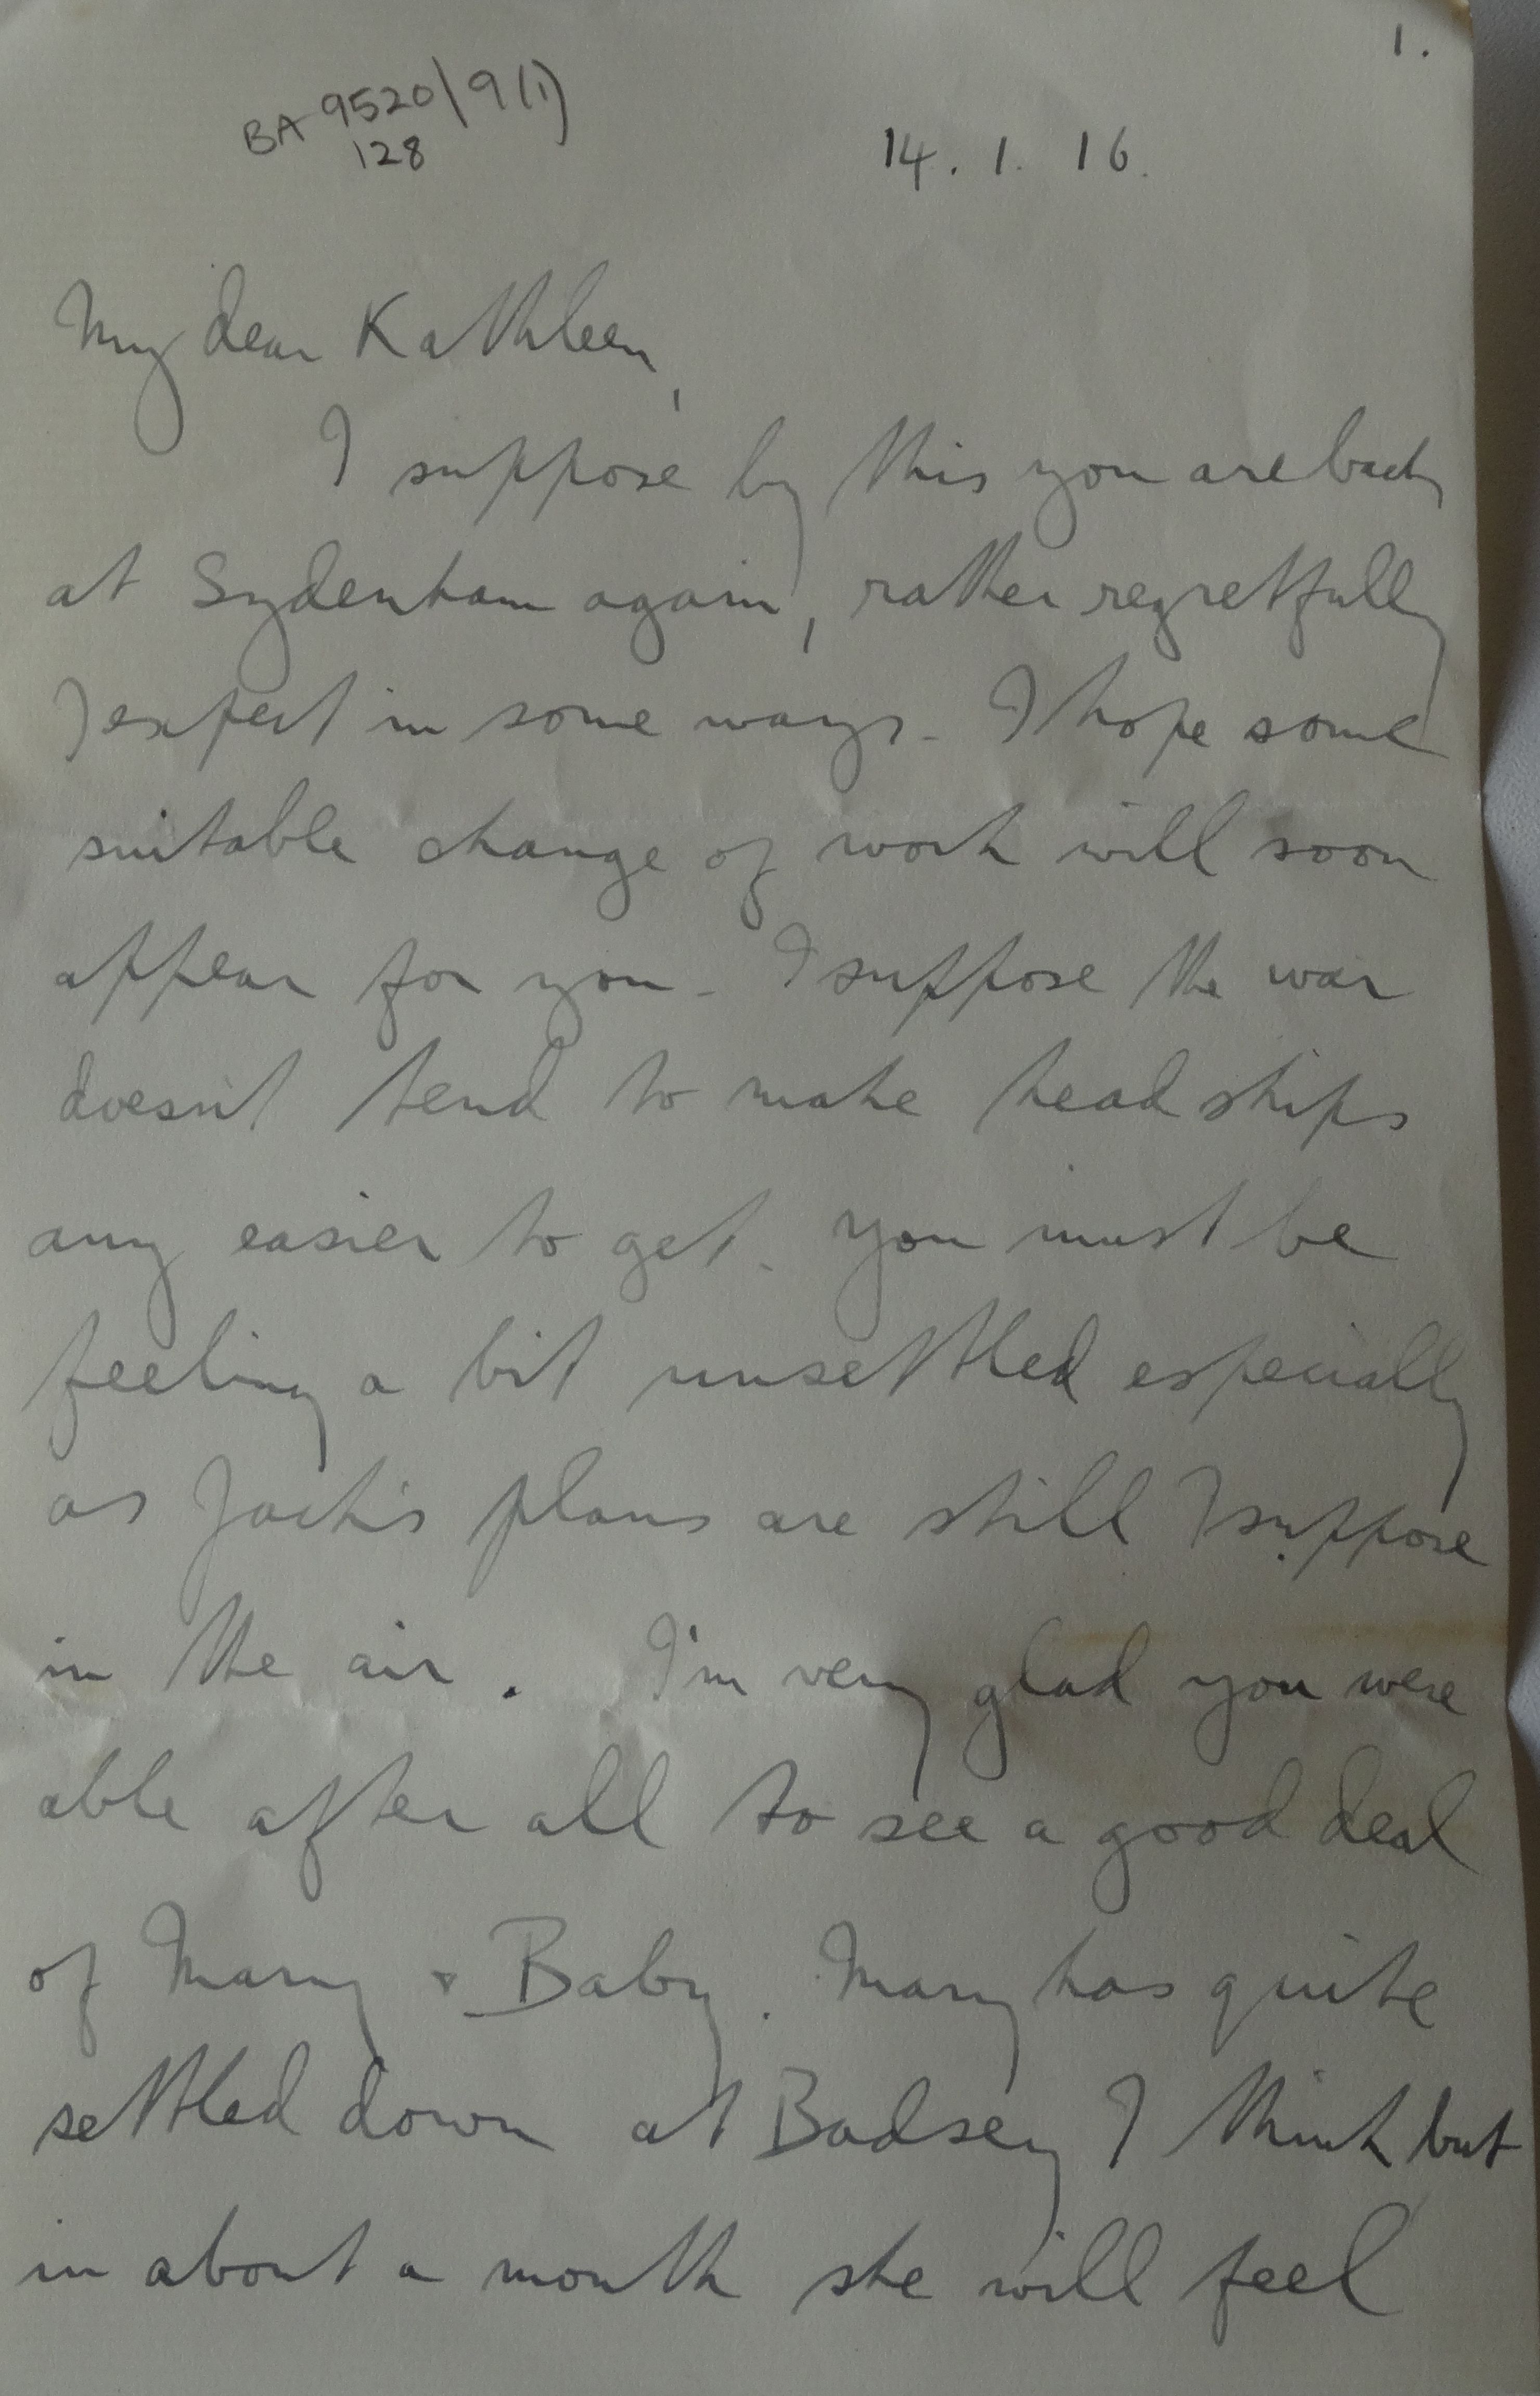 1.
BA 9520/9(1)
128
14. 1. 16.
My dear Kathleen,
I suppose by this you are back
at Sydenham again, rather regretfully
I expect in some ways. I hope some
suitable change of work will soon
appear for you. I suppose the war
doesn't tend to make headships
any easier to get. You must be
feeling a bit unsettled especially
as Jack's plans are still I suppose
in the air. I'm very glad you were
able after all to see a good deal
of Mary & Baby. Mary has quite
settled down at Badsey I think but
in about a month she will feel